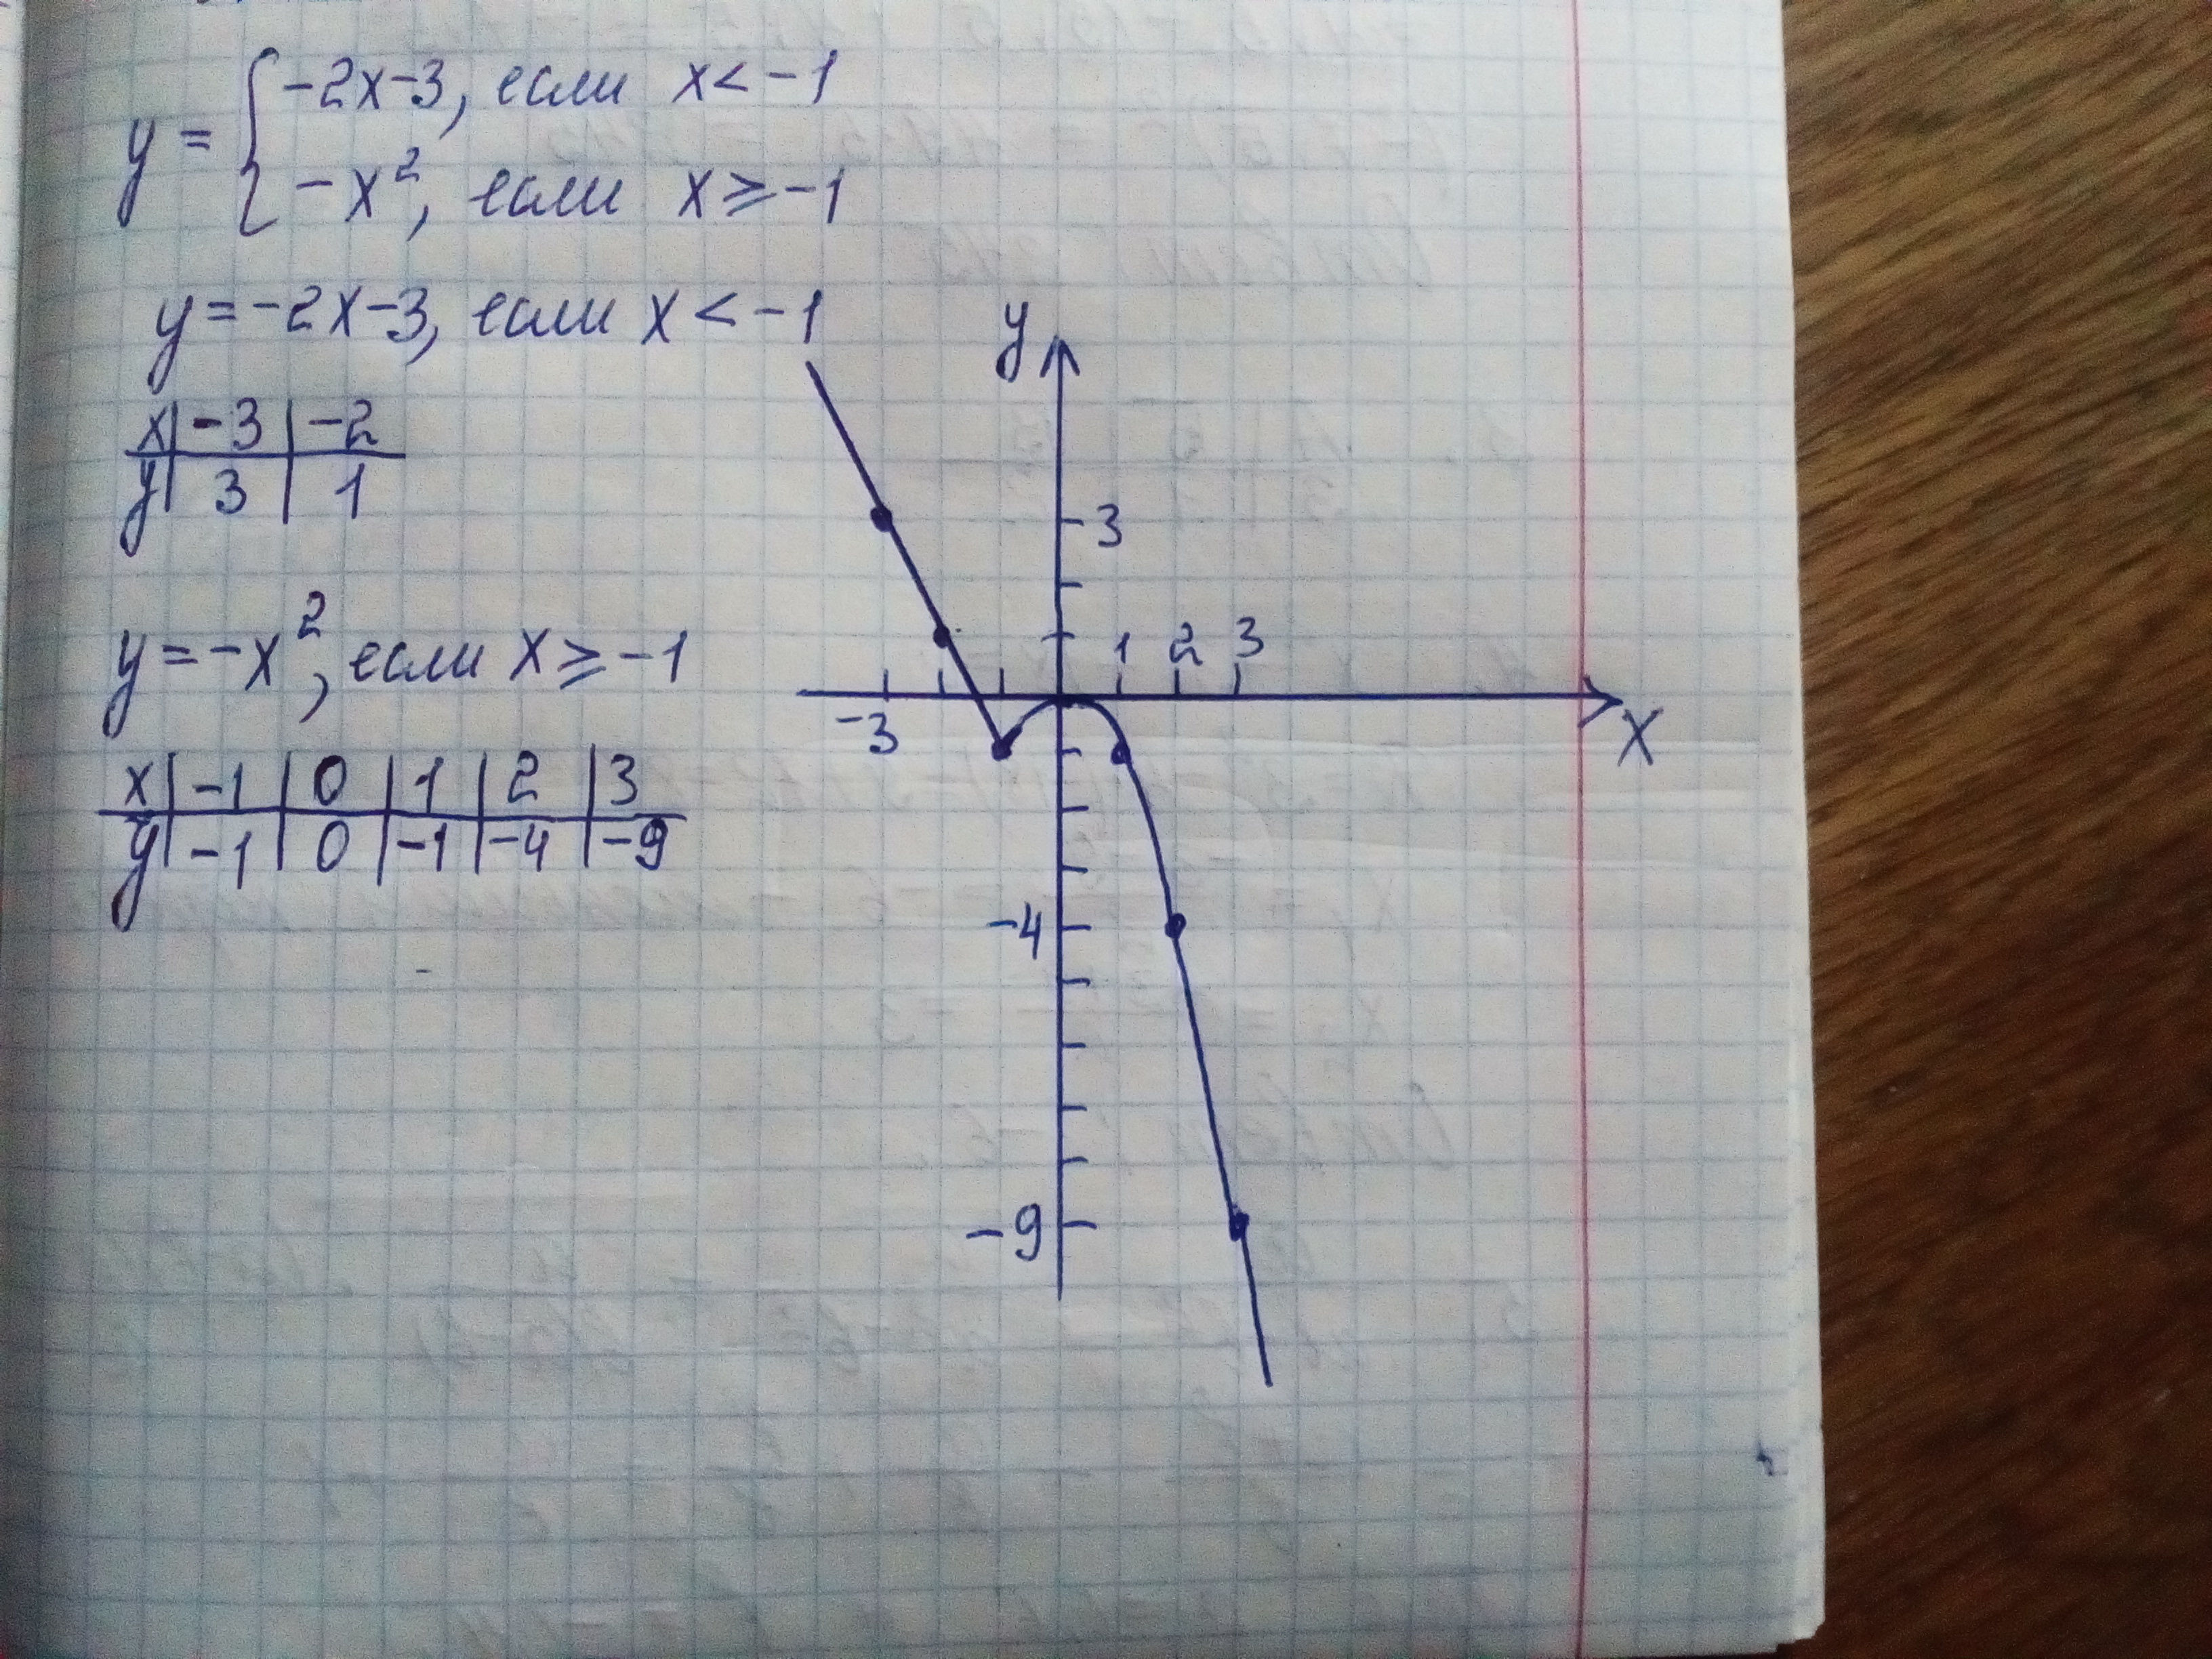 y = { -2x-3, если x < -1
-x², если x ≥ -1
y = -2x-3, если x < -1
x | -3 | -2
y | 3 | 1
y = -x², если x ≥ -1
x | -1 | 0 | 1 | 2 | 3
y | -1 | 0 | -1 | -4 | -9
y
3
1 2 3
-3
x
-4
-9